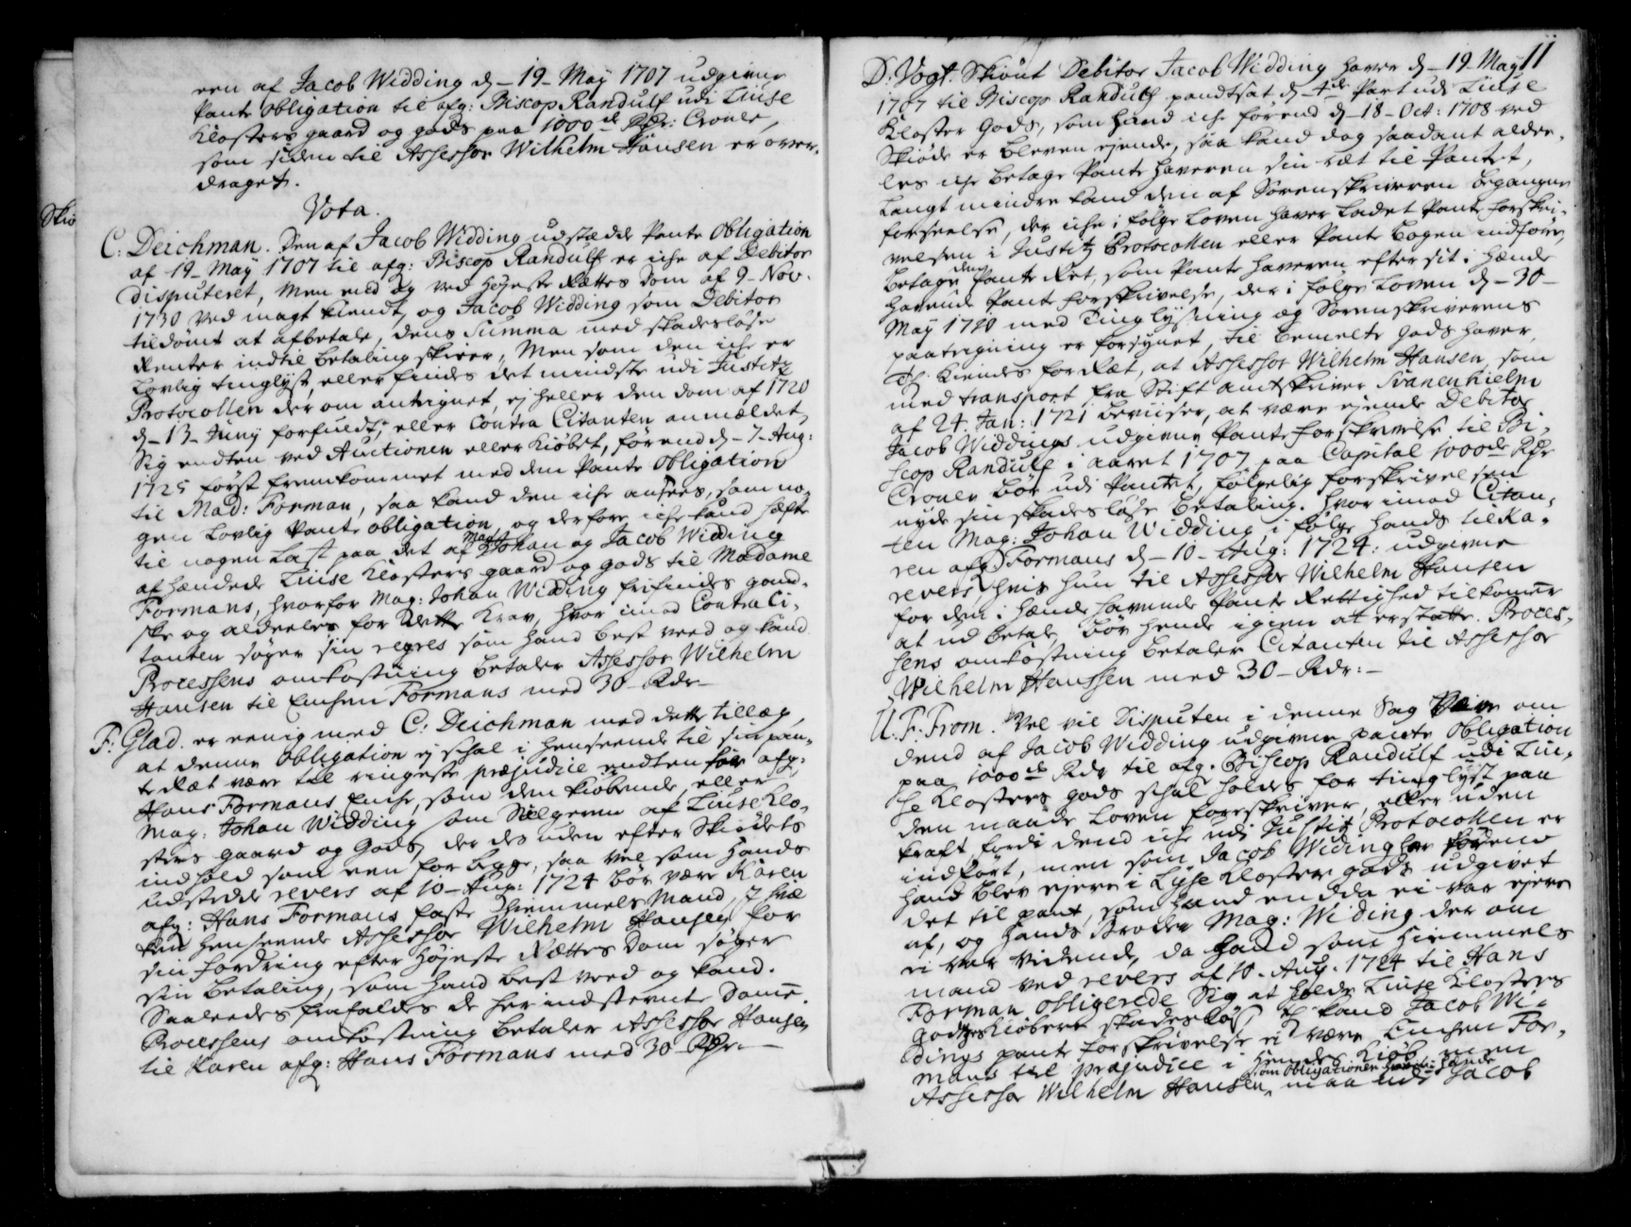 een af Jacob Widding d – 19 – Maÿ 1707 udgivne
Pante obligation til afg: Biscop Randulf udi Liuse
Klosters gaard og gods paa 1000 de Rdr: Croner,
som siden til Assessor Wilhelm Hansen er over-
draget.
Vota.
C. Deichman. Den af Jacob Widding udstædde Pante Obligation
af 19 – Maÿ 1707 til afg: Biscop Randulf er iche af Debitor
disputeret, men end og ved Høÿeste Rættes Dom af 9 – Nov.
1730 ved magt kiendt, og Jacob Widding som Debitor
tildømt at afbetale, dens Summa med skadesløse
Renter indtil betaling skeer, Men som den iche er
Lovlig tinglÿst, eller findes det mindste udi Justitz
Protocollen der om antegnet, eÿ heller den dom af 1720
d – 13 – Junÿ forfuldt, eller Contra Citanten anmældet
Sig endten ved Auctionen eller Kiøbet, førend d – 7 – Aug:
1725 først fremkommet med den Pante Obligation
til Mad: Forman, saa kand den iche ansees, som no-
gen Lovlig Pante obligation, og derfore iche kand hæfte
til nogen Last paa det af Mag: Johan og Jacob Widding
afhændede Liuse Klosters gaard og gods til Madame
Formans, hvorfor Mag: Johan Widding frifindes gand-
ske og aldeeles for dette Krav, hvor imod Contra Ci-
tanten søger sin regres som hand best veed og kand
Processens omkostning betaler Assessor Wilhelm
Hansen til Enchen Formans med 30 – Rdr –
F: Glad. er eenig med C: Deichman med dette tillæg,
at denne Obligation eÿ schal i henseende til sin pan-
te Ræt være til ringeste præjudice endten for afg:
Hans Formans Enche, som den kiøbende, eller
Mag: Johan Widding som Sælgeren af Liuse Klo-
sters gaard og Gods, der desuden efter Skiødets
indhold som een for begge, saa vel som hands
udstedde revers af 10 – Aug: 1724 bør være Karen
afg: Hans Formans faste Hiemmels Mand, I hvil
ken henseende Assessor Wilhelm Hansen for
sin fordring efter Høÿeste Rættes Dom søger
sin betaling, som hand best veed og kand.
Saaledes frafaldes de her indstevnte Domme.
Processens omkostning betaler Assessor Hansen
til Karen afg: Hans Formans med 30 – Rdr. –
11
D: Vogt. Skiønt Debitor Jacob Widding haver d – 19 – Maÿ
1707 til Biscop Randulf pandtsat d – 4de Part udi Liuse
Kloster Gods, som hand iche førend d – 18 – Oct: 1708 ved
Skiøde er bleven eÿende, saa kand dog saadant aldee-
les iche betage Pante haveren sin ræt til Pantet,
langt mindre kand den af Sorenskriveren begangne
forseelse, der iche i følge Loven haver ladet Pante forskri-
velsen i Justitz Protocollen eller Pante bogen indføre,
betage den Pante Ret, som Pante haveren efter sit i hænde
havende Pante forskrivelse, der i følge Loven d – 30 –
Maÿ 1720 med Tinglÿsning og Sorenskriverens
paategning er forsÿnet, til bemelte gods haver,
Thi kiendes for Ræt, at Assessor Wilhelm Hansen som
med transport fra Stift amtskriver Svanenhielm
af 24 Jan: 1721 beviiser, at være eÿende Debitor
Jacob Widdings udgivne Pante forskrivelse til Bi-
scop Randulf i aaret 1707 paa Capital 1000de Rdr
Croner bør udi Pantet, følgelig forskrivelsen
nÿde sin skadesløse betaling. hvor imod Citan-
ten Mag: Johan Widding, i følge hands til Ka-
ren afg: Formans d – 10 – Aug: 1724: udgivne
revers, hvis hun til Assessor Wilhelm Hansen
for den i hænde havende Pante Rettighed tilkommer
at udbetale, bør hende igien at erstatte. Proces-
sens omkostning betaler Citanten til Assessor
Wilhelm Hanssen med 30 – Rdr: –
U. F: From. Vel vil Disputen i denne Sag være om
dend af Jacob Widding udgivne pante Obligation
paa 1000 de Rdr til afg. Biscop Randulf udi Liu-
se Klosters gods schal holdes for tinglÿst paa
den maade Loven foreskriver, eller uden
kraft fordi dend iche udi Justitz Protocollen er
indført, men som Jacob Widing har førend
hand blev eÿere i Lÿse Kloster gods udgivet
det til pant, som hand endda ei var eÿere
af, og hands Broder Mag: Widing der om
ei var vidende, da hand som Hiemmels
mand ved revers af 10. Aug. 1724 til Hans
Forman obligerede Sig at holde Liuse Klosters
Godtzes Kiøbere skadesløs, Th kand Jacob Wi-
dings pante forskrivelse ei være Enchen For-
mans til præjudice i hendes Kiøb men
Assessor Wilhelm Hansen, som Obligationen har i hænde maa udi Jacob